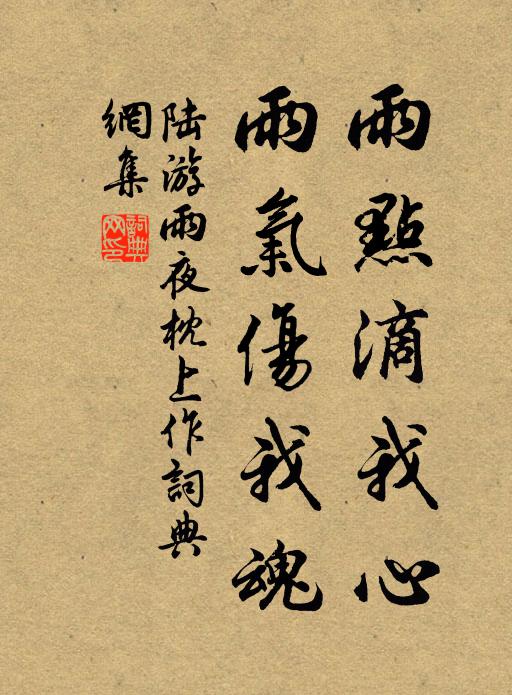 雨點滴我心
雨氣傷我魂
陸游雨夜枕上作詞典
網集
詞典
网印